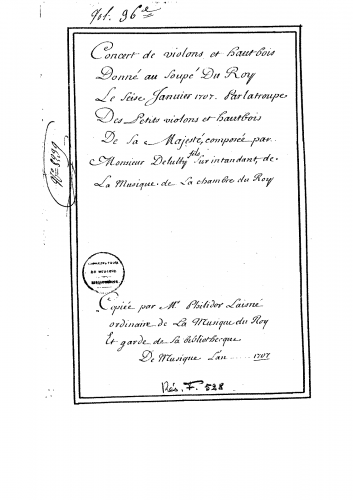 Concert de violons et hautbois
Donné au Soupé Du Roy
Le Seise Janvier 1707. Par la troupe
Des Petits violons et hautbois
De Sa Majesté, composée par
Monsieur Delully fils Surintandant, de
La Musique de La chambre du Roy
CONSERVATOIRE
DE MUSIQUE
BIBLIOTHÈQUE
Copiée par Mr. Philidor Laisné
ordinaire de La Musique du Roy
Et garde de Sa bibliotheque
De Musique L'an ...... 1707
Rés. F. 528